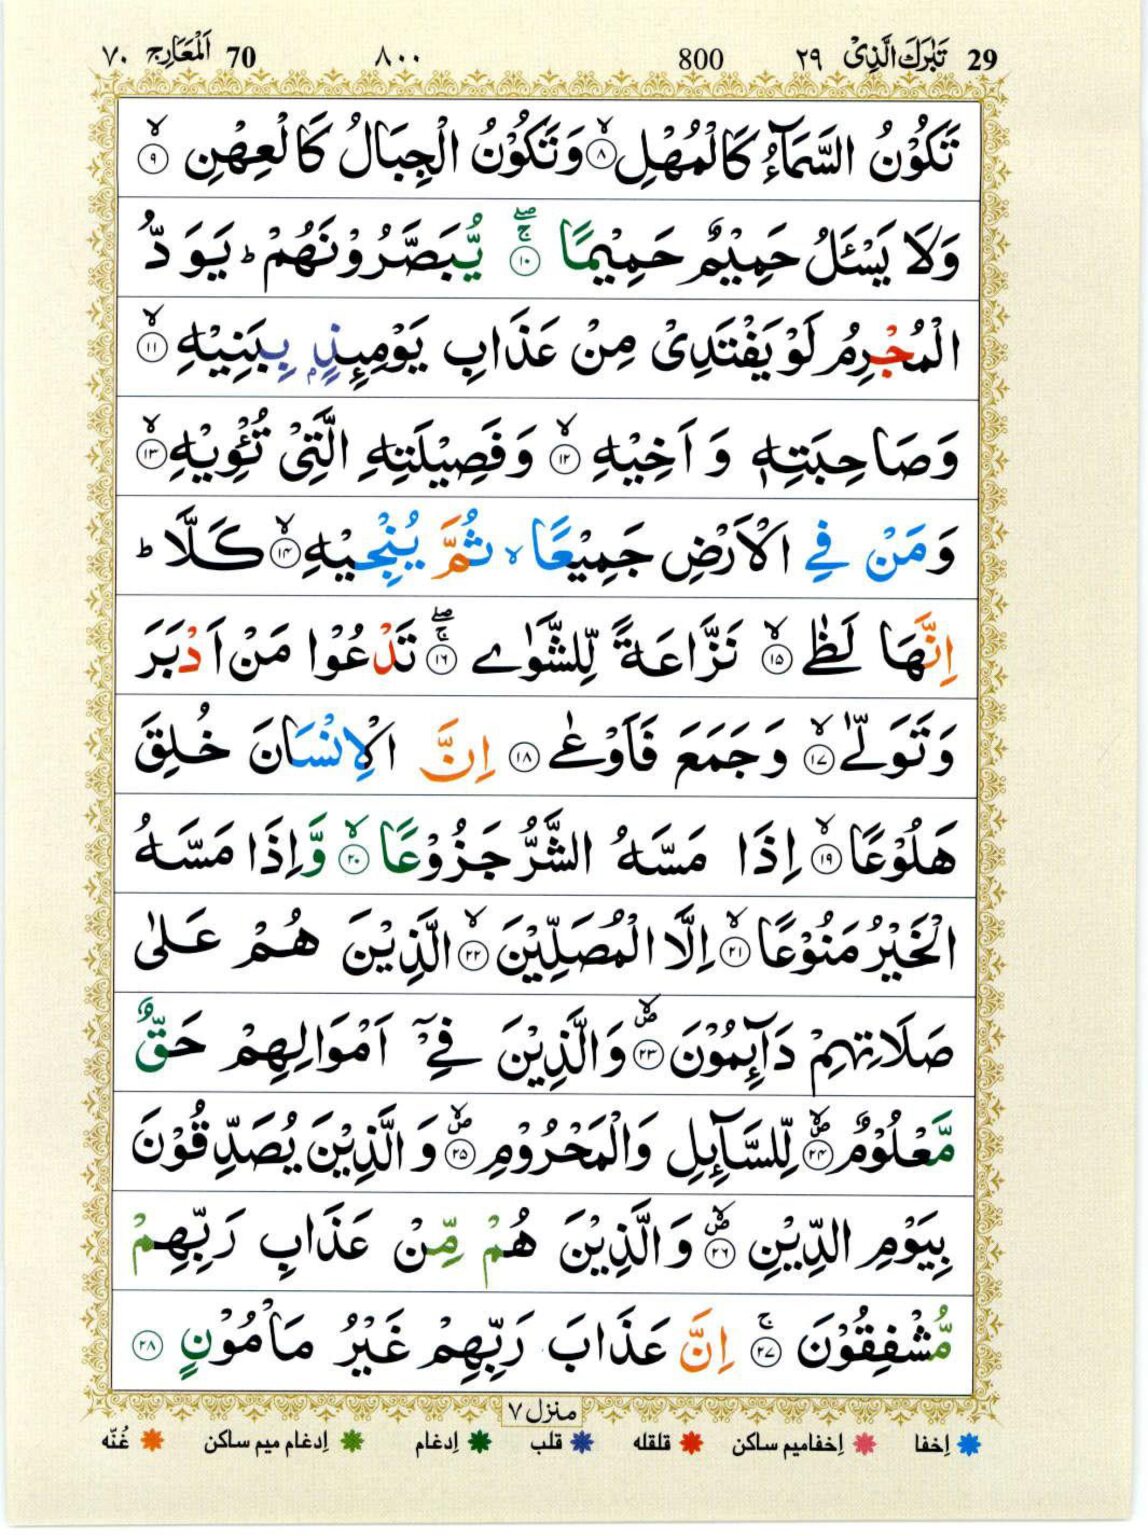 29 تَبٰرَكَ الَّذِیْ ٢٩ 800 ٨٠٠ 70 اَلْمَعَارِج ٧٠
تَكُوْنُ السَّمَآءُ كَالْمُهْلِ ۙ٨ وَ تَكُوْنُ الْجِبَالُ كَالْعِهْنِ ۙ٩
وَلَا يَسْـَٔلُ حَمِيْمٌ حَمِيْمًا ۚۖ١٠ يُّبَصَّرُوْنَهُمْ ؕ يَوَدُّ
الْمُجْرِمُ لَوْ يَفْتَدِیْ مِنْ عَذَابِ يَوْمِىِٕذٍۭ بِبَنِيْهِ ۙ١١
وَصَاحِبَتِهٖ وَ اَخِيْهِ ۙ١٢ وَ فَصِيْلَتِهِ الَّتِیْ تُـْٔوِيْهِ ۙ١٣
وَمَنْ فِی الْاَرْضِ جَمِيْعًا ۙ ثُمَّ يُنْجِيْهِ ۙ١٤ كَلَّا ؕ
اِنَّهَا لَظٰى ۙ١٥ نَزَّاعَةً لِّلشَّوٰى ۚۖ١٦ تَدْعُوْا مَنْ اَدْبَرَ
وَ تَوَلّٰى ۙ١٧ وَجَمَعَ فَاَوْعٰى ١٨ اِنَّ الْاِنْسَانَ خُلِقَ
هَلُوْعًا ۙ١٩ اِذَا مَسَّهُ الشَّرُّ جَزُوْعًا ۙ٢٠ وَّاِذَا مَسَّهُ
الْخَيْرُ مَنُوْعًا ۙ٢١ اِلَّا الْمُصَلِّيْنَ ۙ٢٢ الَّذِيْنَ هُمْ عَلٰى
صَلَاتِهِمْ دَآىِٕمُوْنَ ۪ۙ٢٣ وَالَّذِيْنَ فِیْۤ اَمْوَالِهِمْ حَقٌّ
مَّعْلُوْمٌ ۪ۙ٢٤ لِّلسَّآىِٕلِ وَالْمَحْرُوْمِ ۪ۙ٢٥ وَ الَّذِيْنَ يُصَدِّقُوْنَ
بِيَوْمِ الدِّيْنِ ۪ۙ٢٦ وَ الَّذِيْنَ هُمْ مِّنْ عَذَابِ رَبِّهِمْ
مُّشْفِقُوْنَ ۚ٢٧ اِنَّ عَذَابَ رَبِّهِمْ غَيْرُ مَاْمُوْنٍ ٢٨
منزل ٧
اِخفا اِخفامیم ساکن قلقله قلب اِدغام اِدغام میم ساکن غُنّه